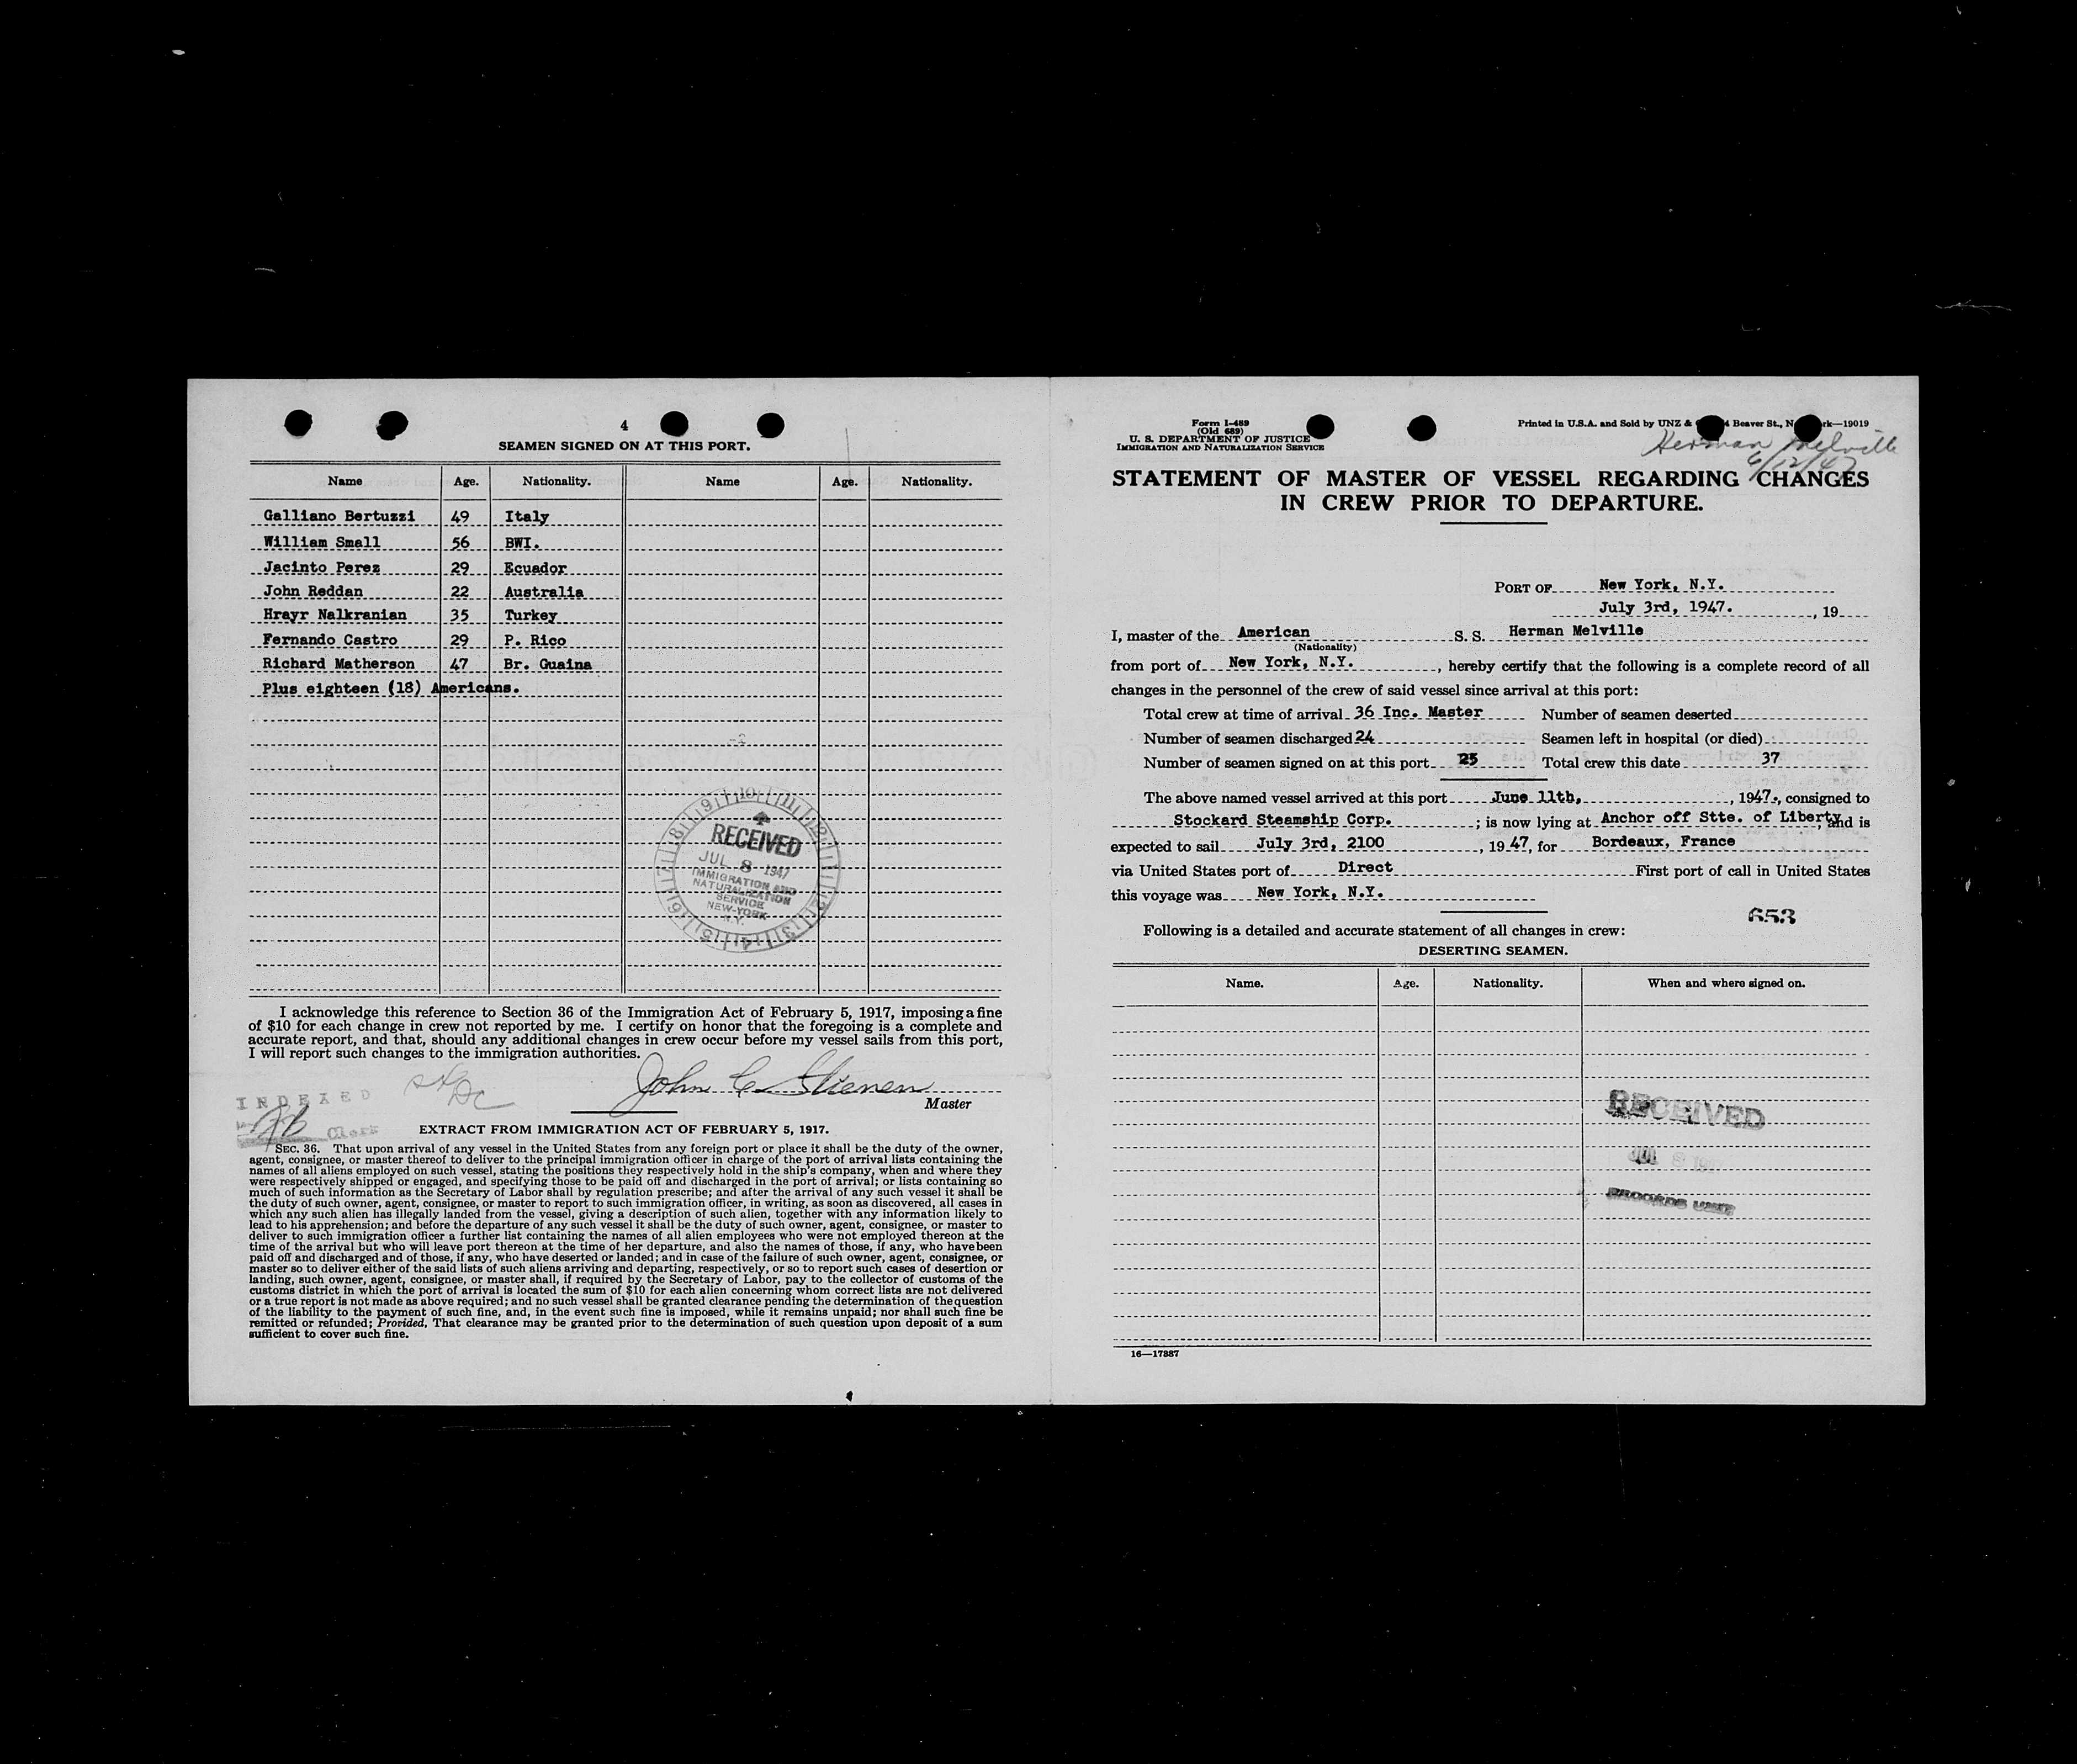 4
SEAMEN SIGNED ON AT THIS PORT.
Name Age. Nationality. Name Age. Nationality.
Galliano Bertuzzi 49 Italy
William Small 56 BWI.
Jacinto Perez 29 Ecuador
John Reddan 22 Australia
Hrayr Nalkranian 35 Turkey
Fernando Castro 29 P. Rico
Richard Matherson 47 Br. Guaina
Plus eighteen (18) Americans.
RECEIVED
JUL 8 1947
IMMIGRATION AND
NATURALIZATION
SERVICE
NEW-YORK
N.Y.
I acknowledge this reference to Section 36 of the Immigration Act of February 5, 1917, imposing a fine
of $10 for each change in crew not reported by me. I certify on honor that the foregoing is a complete and
accurate report, and that, should any additional changes in crew occur before my vessel sails from this port,
I will report such changes to the immigration authorities.
John C
Master
INDEXED
Clerk
EXTRACT FROM IMMIGRATION ACT OF FEBRUARY 5, 1917.
SEC. 36. That upon arrival of any vessel in the United States from any foreign port or place it shall be the duty of the owner,
agent, consignee, or master thereof to deliver to the principal immigration officer in charge of the port of arrival lists containing the
names of all aliens employed on such vessel, stating the positions they respectively hold in the ship's company, when and where they
were respectively shipped or engaged, and specifying those to be paid off and discharged in the port of arrival; or lists containing so
much of such information as the Secretary of Labor shall by regulation prescribe; and after the arrival of any such vessel it shall be
the duty of such owner, agent, consignee, or master to report to such immigration officer, in writing, as soon as discovered, all cases in
which any such alien has illegally landed from the vessel, giving a description of such alien, together with any information likely to
lead to his apprehension; and before the departure of any such vessel it shall be the duty of such owner, agent, consignee, or master to
deliver to such immigration officer a further list containing the names of all alien employees who were not employed thereon at the
time of the arrival but who will leave port thereon at the time of her departure, and also the names of those, if any, who have been
paid off and discharged and of those, if any, who have deserted or landed; and in case of the failure of such owner, agent, consignee, or
master so to deliver either of the said lists of such aliens arriving and departing, respectively, or so to report such cases of desertion or
landing, such owner, agent, consignee, or master shall, if required by the Secretary of Labor, pay to the collector of customs of the
customs district in which the port of arrival is located the sum of $10 for each alien concerning whom correct lists are not delivered
or a true report is not made as above required; and no such vessel shall be granted clearance pending the determination of the question
of the liability to the payment of such fine, and, in the event such fine is imposed, while it remains unpaid; nor shall such fine be
remitted or refunded; Provided, That clearance may be granted prior to the determination of such question upon deposit of a sum
sufficient to cover such fine.
Form I-489
(Old 689)
U. S. DEPARTMENT OF JUSTICE
IMMIGRATION AND NATURALIZATION SERVICE
Printed in U.S.A. and Sold by UNZ & 4 Beaver St., N rk—19019
Herman Melville
6/12/47
STATEMENT OF MASTER OF VESSEL REGARDING CHANGES
IN CREW PRIOR TO DEPARTURE.
PORT OF New York, N.Y.
July 3rd, 1947. , 19
I, master of the American S. S. Herman Melville
(Nationality)
from port of New York, N.Y. , hereby certify that the following is a complete record of all
changes in the personnel of the crew of said vessel since arrival at this port:
Total crew at time of arrival 36 Inc. Master Number of seamen deserted
Number of seamen discharged 24 Seamen left in hospital (or died)
Number of seamen signed on at this port 25 Total crew this date 37
The above named vessel arrived at this port June 11th, , 1947., consigned to
Stockard Steamship Corp. ; is now lying at Anchor off Stte. of Liberty, and is
expected to sail July 3rd, 2100 , 1947, for Bordeaux, France
via United States port of Direct First port of call in United States
this voyage was New York, N.Y.
653
Following is a detailed and accurate statement of all changes in crew:
DESERTING SEAMEN.
Name. Age. Nationality. When and where signed on.
RECEIVED
JUL 8
RECORDS UNIT
16—17887